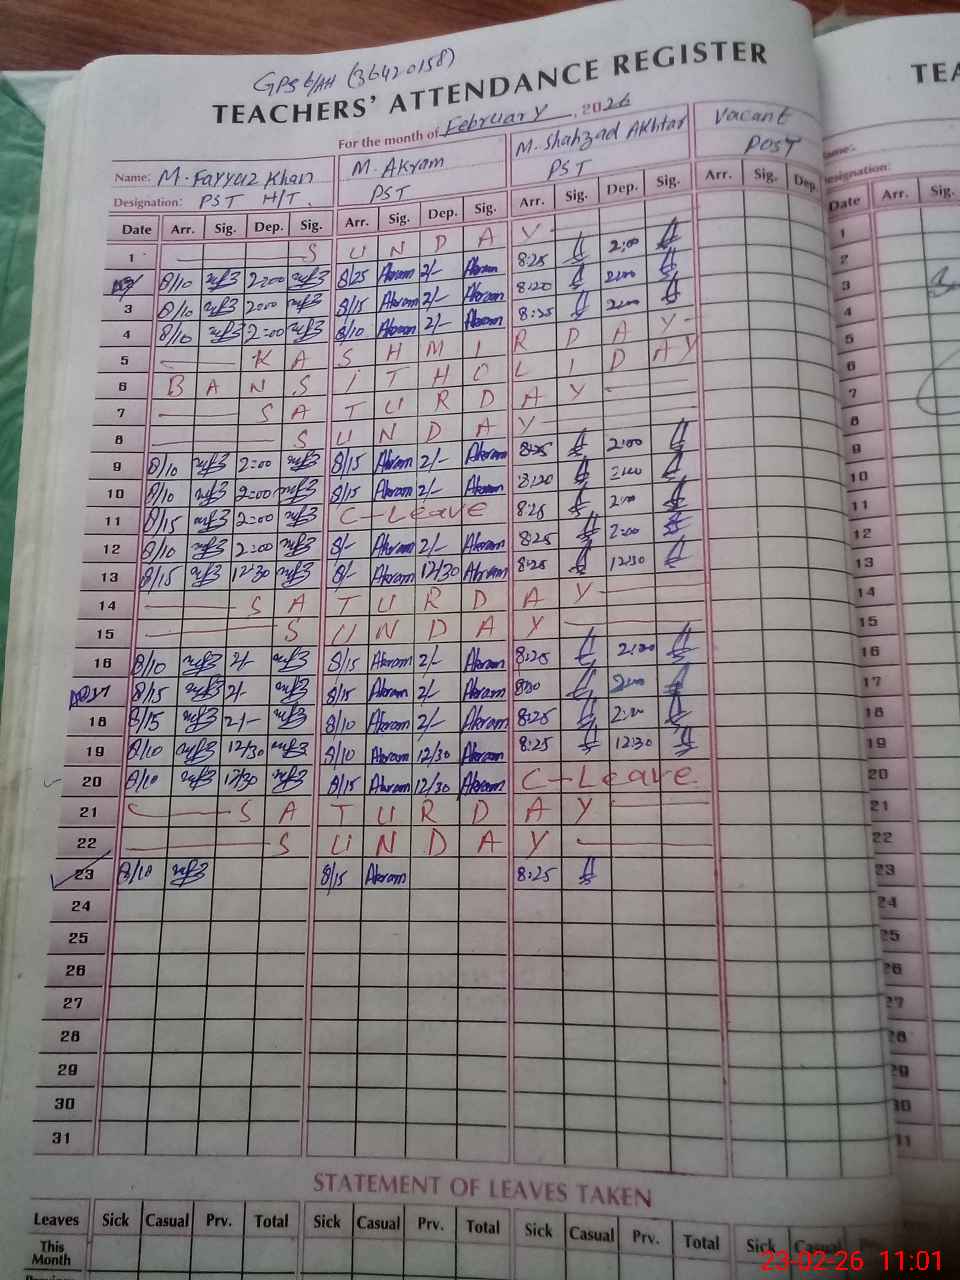 GPS 6/AH (36420158)
TEACHERS' ATTENDANCE REGISTER
For the month of February, 2026
Name: M. Fayyaz Khan M. Akram M. Shahzad Akhtar Vacant
Designation: PST H/T. PST PST POST
Date Arr. Sig. Dep. Sig. Arr. Sig. Dep. Sig. Arr. Sig. Dep. Sig. Arr. Sig. Dep.
1 S U N D A Y
8/10 2=00 8/25 Akram 2/- Akram 8:25 2:00
3 8/10 2=00 8/15 Akram 2/- Akram 8:20 2:00
4 8/10 2=00 8/10 Akram 2/- Akram 8:25 2:00
5 K A S H M I R D A Y
6 B A N S I T H O L I D AY
7 S A T U R D A Y
8 S U N D A Y
9 8/10 2=00 8/15 Akram 2/- Akram 8:25 2:00
10 8/10 2=00 8/15 Akram 2/- Akram 8:20 2:00
11 8/15 2=00 C-Leave 8:25 2:00
12 8/10 2=00 8/- Akram 2/- Akram 8:25 2:00
13 8/15 12:30 8/- Akram 12/30 Akram 8:25 12:30
14 S A T U R D A Y
15 S U N D A Y
16 8/10 2/- 8/15 Akram 2/- Akram 8:25 2:00
8/15 2/- 8/15 Akram 2/- Akram 2:00
18 8/15 2/- 8/10 Akram 2/- Akram 8:25 2:00
19 8/10 12/30 8/10 Akram 12/30 Akram 8:25 12:30
20 8/10 12/30 8/15 Akram 12/30 Akram C-Leave
21 S A T U R D A Y
22 S U N D A Y
23 8/10 8/15 Akram 8:25
24
25
26
27
28
29
30
31
STATEMENT OF LEAVES TAKEN
Leaves Sick Casual Prv. Total Sick Casual Prv. Total Sick Casual Prv. Total Sick Casual
This
Month
TEA
Name:
Designation:
Date Arr. Sig.
1
2
3
4
5
6
7
8
9
10
11
12
13
14
15
16
17
18
19
20
21
22
23
24
25
26
27
28
29
30
23-02-26 11:01